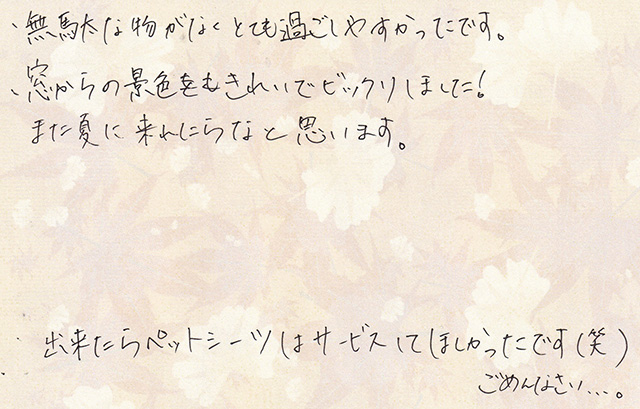 、無駄な物がなくとても過ごしやすかったです。
、窓からの景色もきれいでビックリしました!
また夏に来れたらなと思います。
出来たらペットシーツはサービスしてほしかったです(笑)
ごめんなさい…。